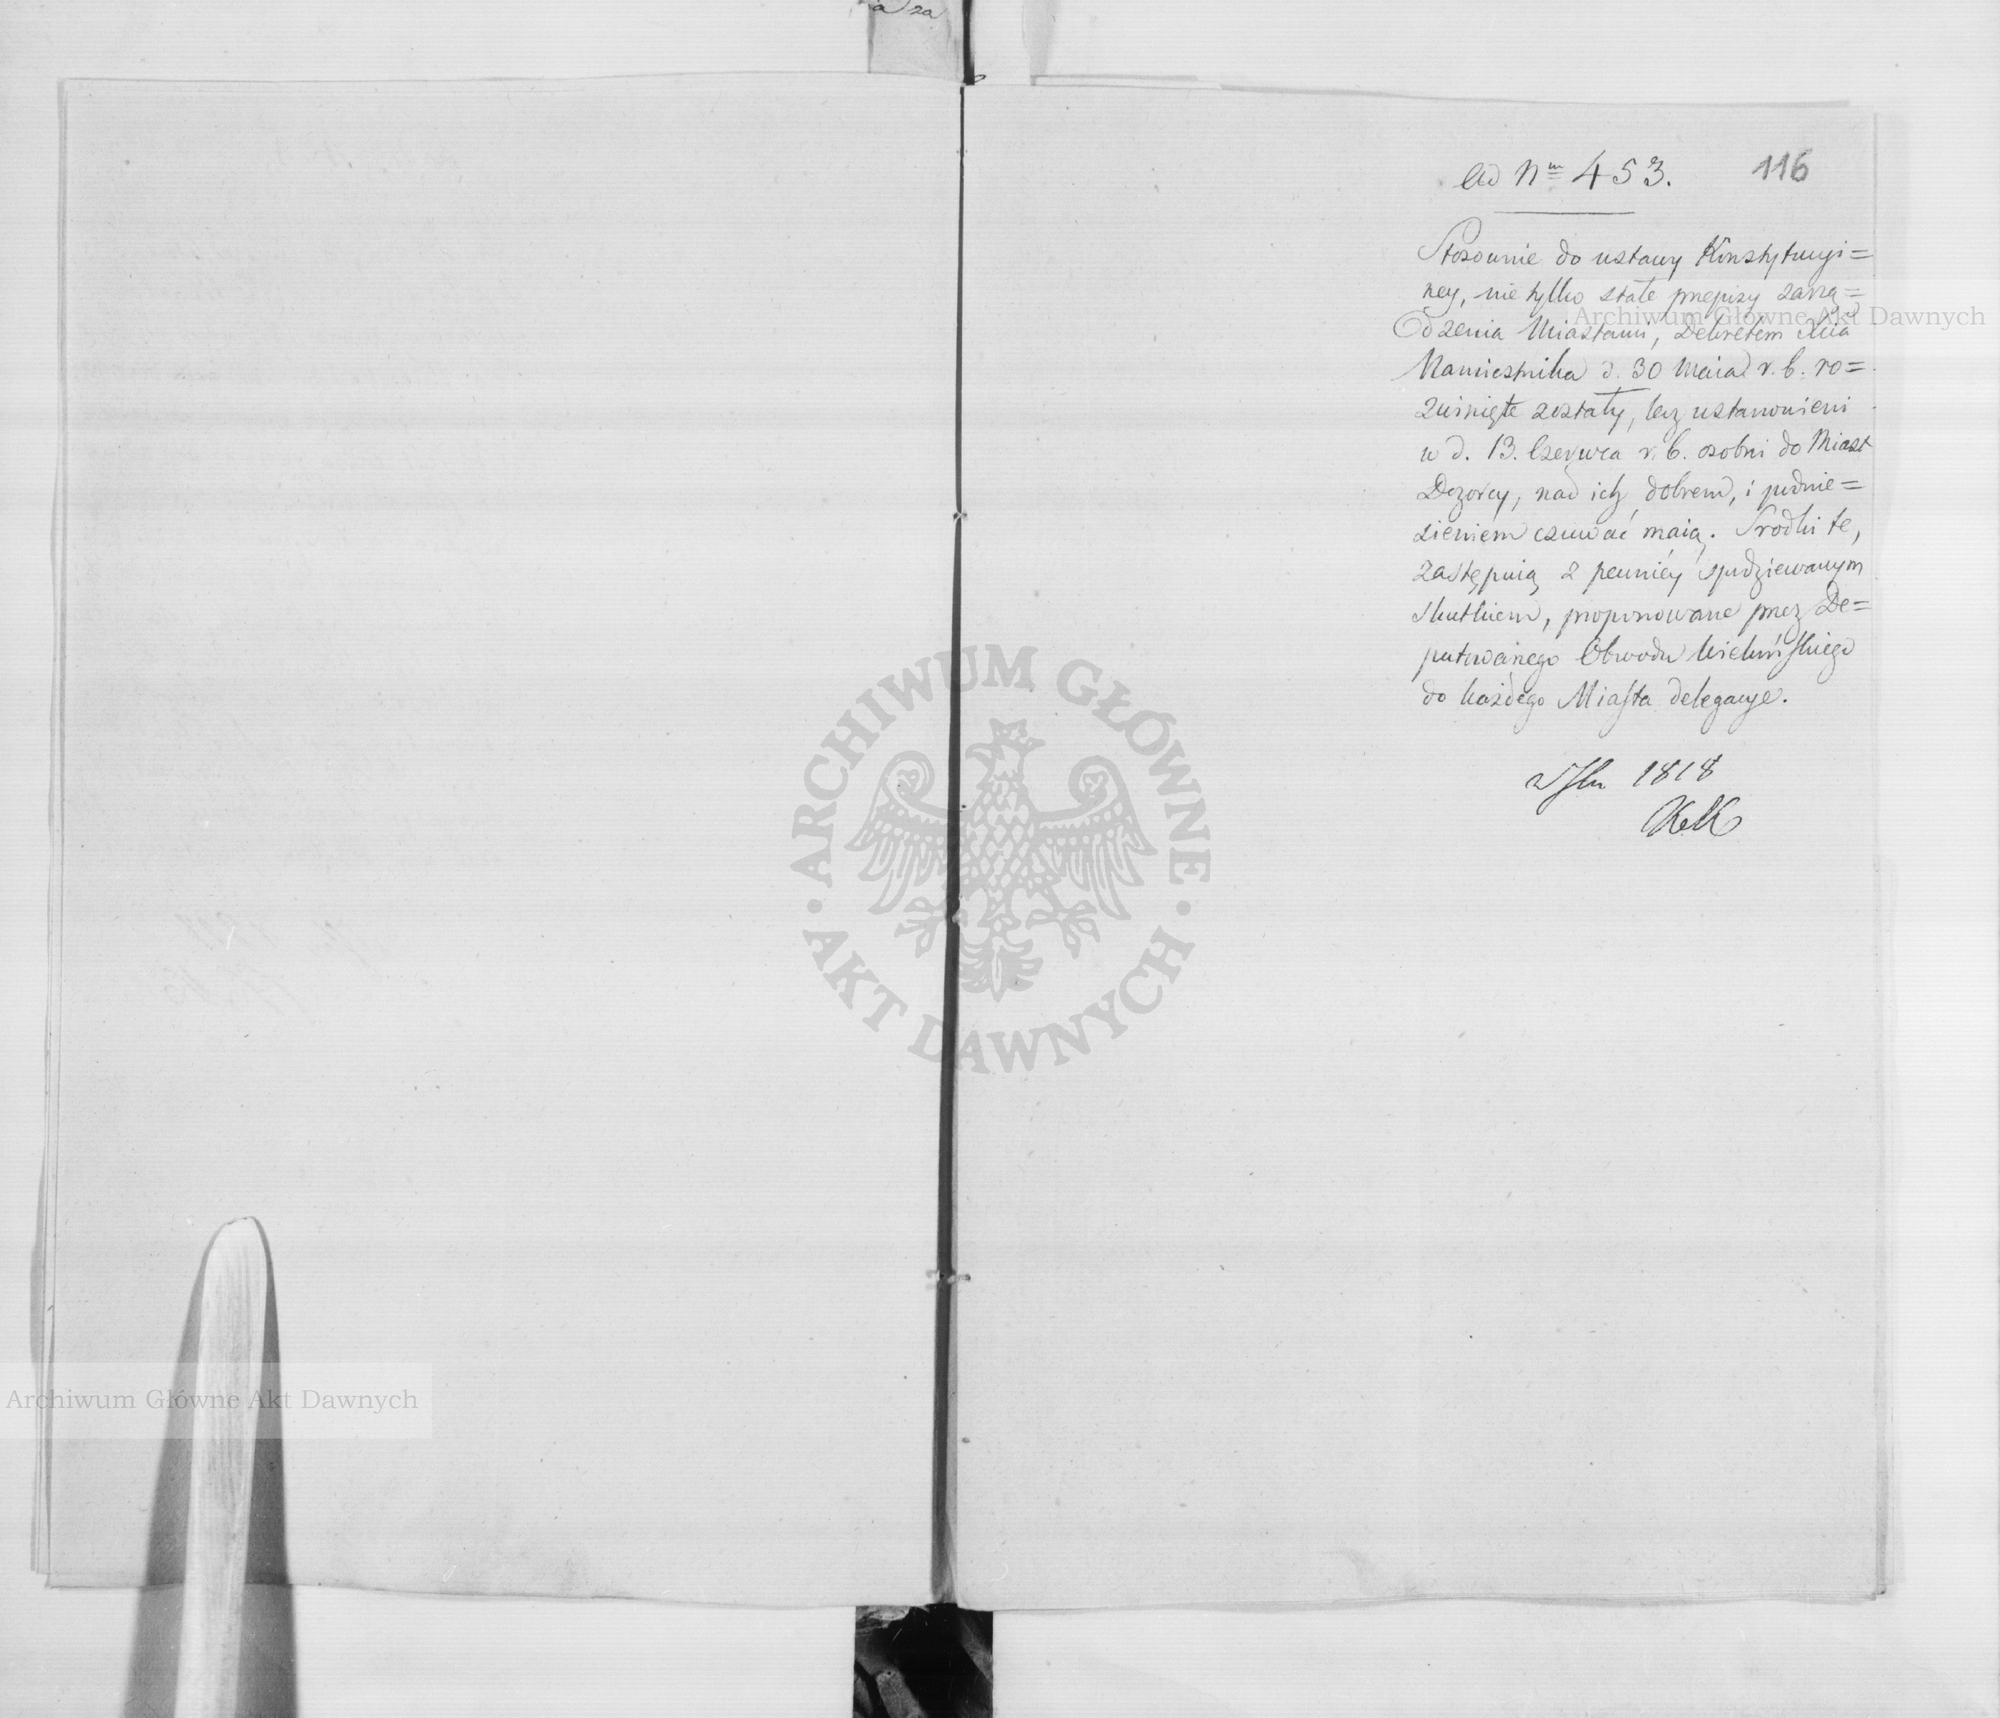 a za
Ad Nm 453.
116
Stosownie do ustawy Konstytucyi=
ney, nie tylko stałe przepisy zarzą=
dzenia Miastami, Dekretem Xcia
Namiestnika d. 30 Maia r. b. ro=
zwinięte zostały, lecz ustanowieni
w d. 13. Czerwca r. b. osobni do Miast
Dozorcy, nad ich dobrem, i podnie=
sieniem czuwać maią. Srodki te,
zastępuią z pewniéy spodziewanym
skutkiem, proponowane przez De=
putowanego Obwodu Wieluńskiego
do każdego Miasta delegacye.
1818
ARCHIWUM GŁÓWNE
AKT DAWNYCH
Archiwum Główne Akt Dawnych
Archiwum Główne Akt Dawnych